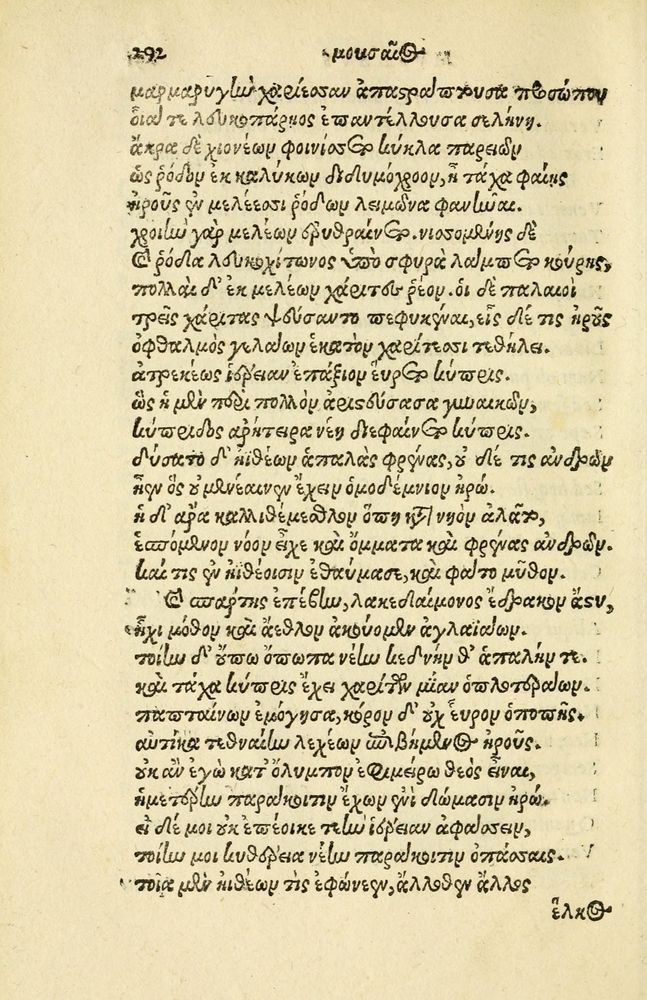 292 μουσαῖος
μαρμαρυγὴν χαρίεσσαν ἀπαστράπτουσα προσώπου
οἷά τε λευκοπάρηος ἐπαντέλλουσα σελήνη.
ἄκρα δὲ χιονέων φοινίσσετο κύκλα παρειῶν
ὡς ῥόδον ἐκ καλύκων διδυμόχροον, ἦ τάχα φαίης
ἡροῦς ἐν μελέεσσι ῥόδων λειμῶνα φανῆναι.
χροιὴν γὰρ μελέων ἐρυθραίνετο. νισσομένης δὲ
καὶ ῥόδα λευκοχίτωνος ὑπὸ σφυρὰ λάμπετο κούρης,
πολλαὶ δ' ἐκ μελέων χάριτες ῥέον. οἱ δὲ παλαιοὶ
τρεῖς χάριτας ψεύσαντο πεφυκέναι, εἷς δέ τις ἡροῦς
ὀφθαλμὸς γελάων ἑκατὸν χαρίτεσσι τεθήλει.
ἀτρεκέως ἱέρειαν ἐπάξιον εὕρετο κύπρις.
ὣς ἡ μὲν περὶ πολλὸν ἀριστεύσασα γυναικῶν,
κύπριδος ἀρήτειρα νέη διεφαίνετο κύπρις.
δύσατο δ' ἠϊθέων ἁπαλὰς φρένας, οὐδέ τις ἀνδρῶν
ἦεν ὃς οὐ μενέαινεν ἔχειν ὁμοδέμνιον ἡρώ.
ἡ δ' ἄρα καλλιθέμεθλον ὅπη κατὰ νηὸν ἀλᾶτο,
ἑσπόμενον νόον εἶχε καὶ ὄμματα καὶ φρένας ἀνδρῶν.
καί τις ἐν ἠϊθέοισιν ἐθαύμασε, καὶ φάτο μῦθον.
καὶ σπάρτης ἐπέβην, λακεδαίμονος ἔδρακον ἄστυ,
ἧχι μόθον καὶ ἄεθλον ἀκούομεν ἀγλαϊάων.
τοίην δ' οὔπω ὄπωπα νέην κεδνήν θ' ἁπαλήν τε.
καὶ τάχα κύπρις ἔχει χαρίτων μίαν ὁπλοτεράων.
παπταίνων ἐμόγησα, κόρον δ' οὐχ εὗρον ὀπωπῆς.
αὐτίκα τεθναίην λεχέων ἐπιβήμενος ἡροῦς.
οὐκ ἂν ἐγὼ κατ' ὄλυμπον ἐφιμείρω θεὸς εἶναι,
ἡμετέρην παράκοιτιν ἔχων ἐνὶ δώμασιν ἡρώ.
εἰ δέ μοι οὐκ ἐπέοικε τεὴν ἱέρειαν ἀφάσσειν,
τοίην μοι κυθέρεια νέην παράκοιτιν ὀπάσσαις.
τοῖα μὲν ἠϊθέων τὶς ἐφώνεεν, ἄλλοθεν ἄλλος
ἕλκος